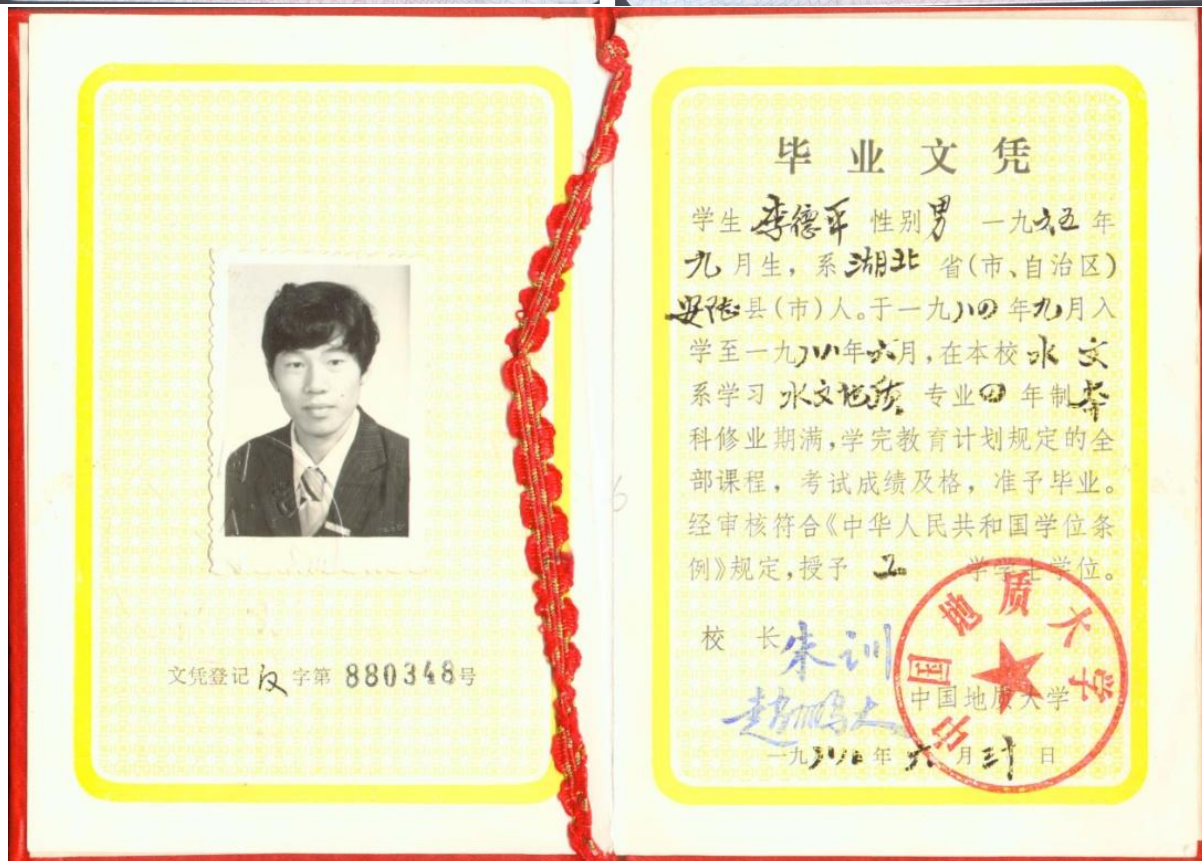 文凭登记汉字第880348号
毕业文凭
学生 李德平 性别男 一九六五年
九月生，系湖北省(市、自治区)
安陆县(市)人。于一九八四年九月入
学至一九八八年六月，在本校水文
系学习 水文地质 专业四年制本
科修业期满，学完教育计划规定的全
部课程，考试成绩及格，准予毕业。
经审核符合《中华人民共和国学位条
例》规定，授予 工 学学士学位。
校 长 朱训
赵鹏大
中国地质大学
中国地质大学
一九八八年六月三十日